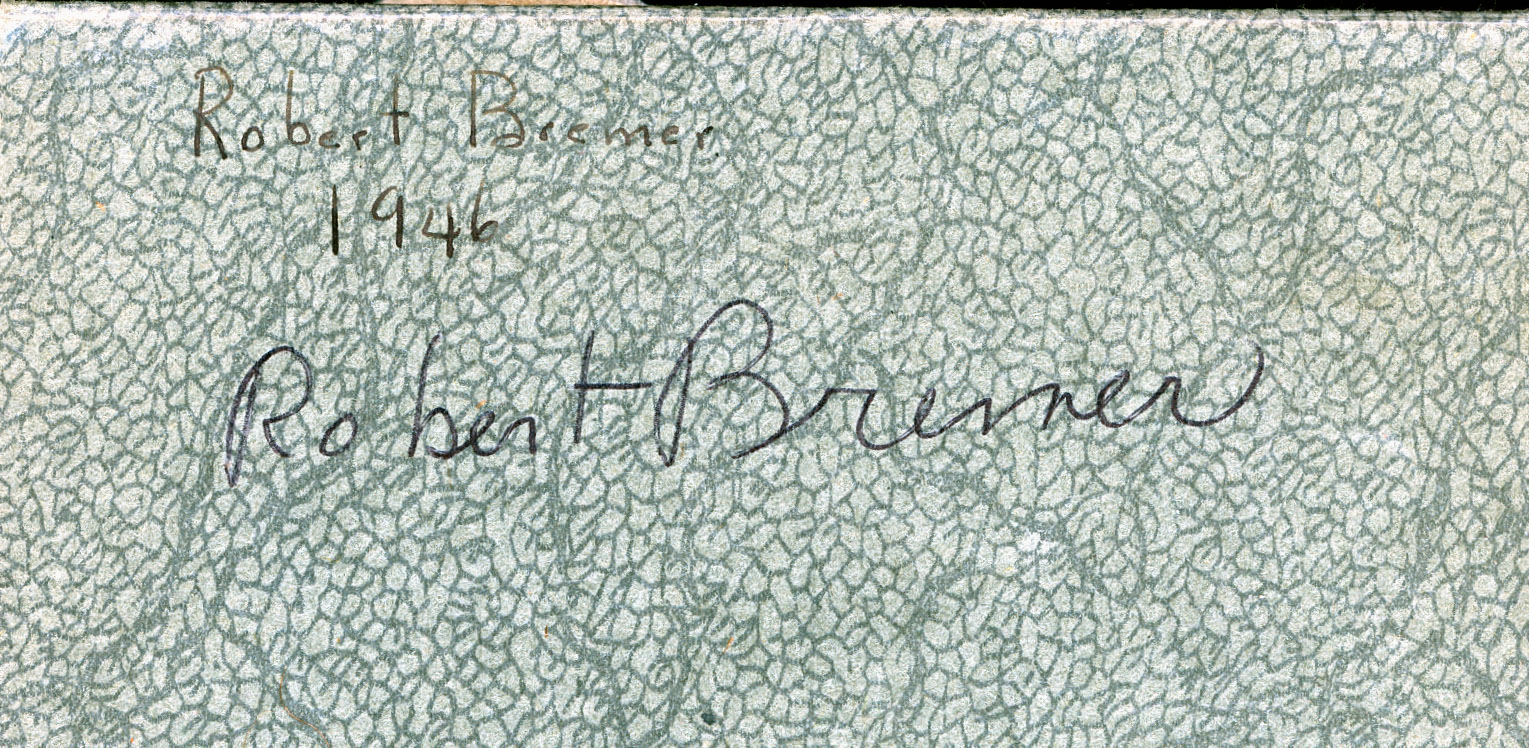 Robert Bremer
1946
Robert Bremer